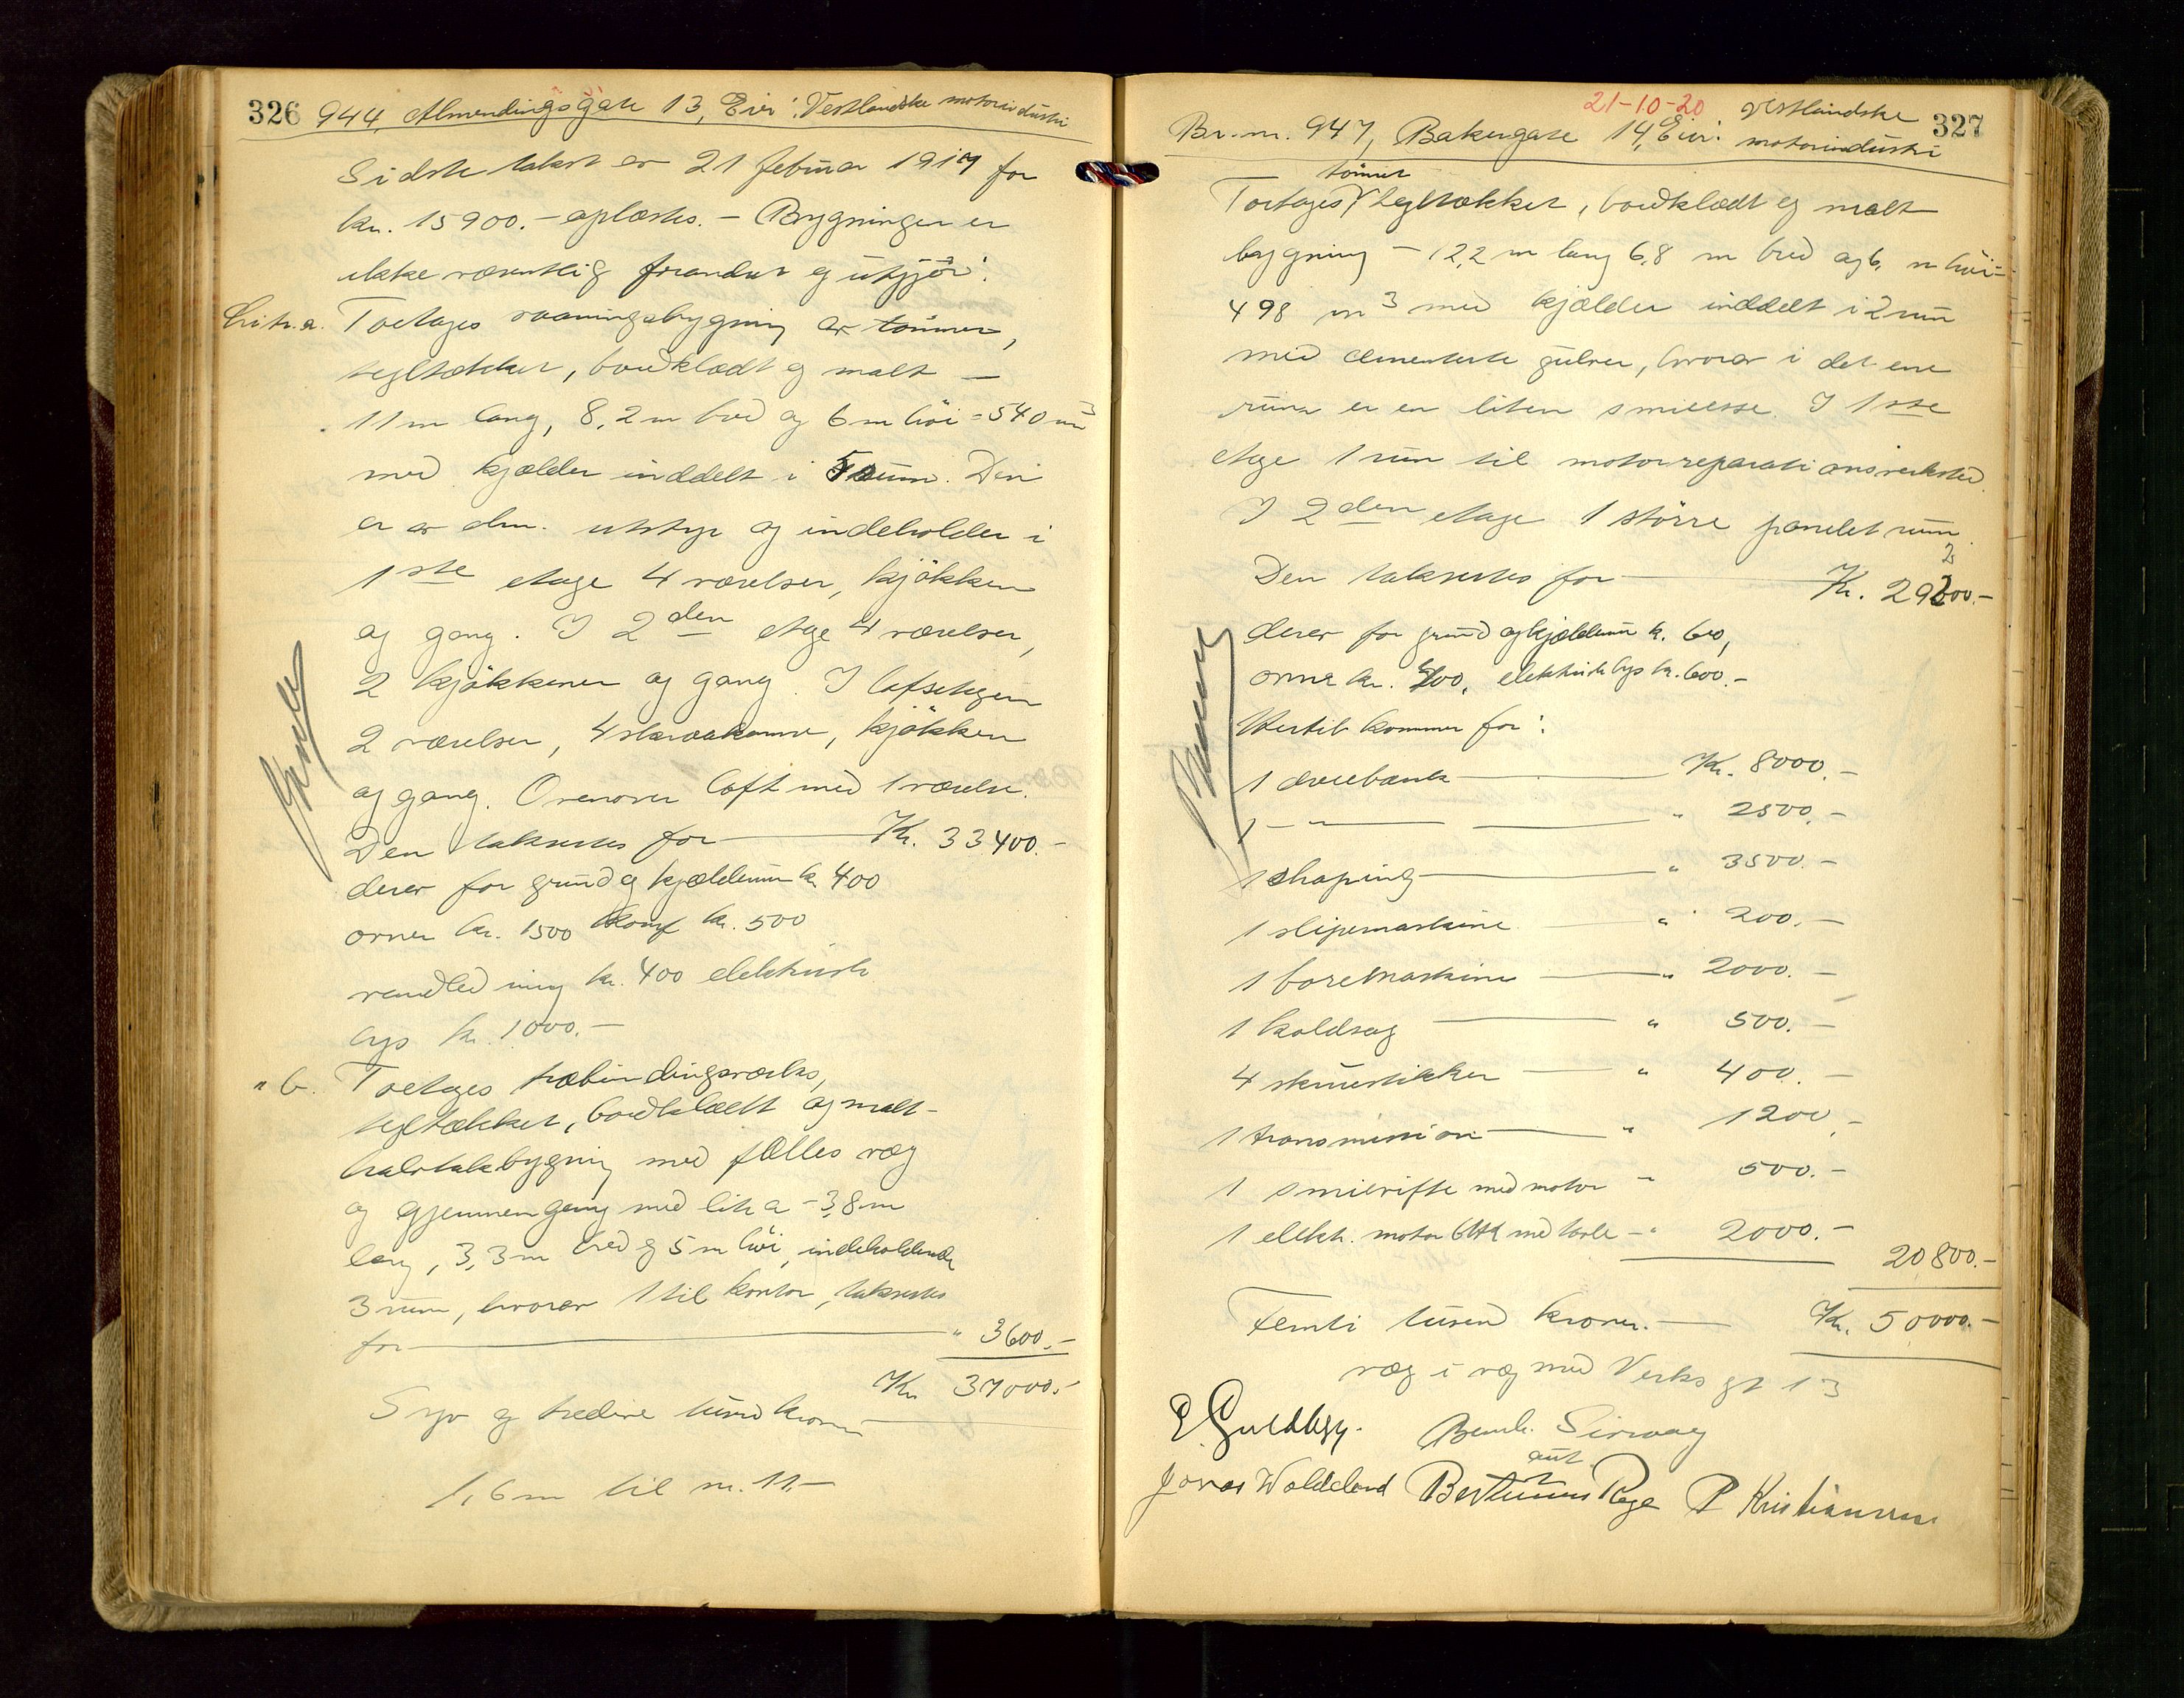 326 944, Almendingsgate 13, Eier: Vestlandske motorindustri
Sidste takst av 21 februar 1917 for
kr. 15900.- oplæstes. - Bygningen er
ikke væsentlig forandret og utgjør:
Litr. a. Toetages vaaningsbygning av tømmer,
tegltækket, bordklædt og malt -
11 m lang, 8,2 m bred og 6 m høi = 540 m³
med kjælder inddelt i 5 rum. Den
er av alm. utstyr og indeholder i
1ste etage 4 værelser, kjøkken
og gang. I 2den etage 4 værelser,
2 kjøkkener og gang. I loftsetagen
2 værelser, 4 skraakammer, kjøkken
og gang. Ovenover loft med 1 værelse.
Den takseres for Kr. 33400.-
derav for grund og kjælderum kr 400
ovner kr. 1500 komf kr. 500
vandledning kr. 400 elektrisk
lys kr. 1000.-
" b. Toetages træbindingsverks,
tegltækket, bordklædt og malt
halvtakbygning med fælles væg
og gjennemgang med litr a - 3,8 m
lang, 3,3 m bred og 5 m høi, indeholdende
3 rum, hvorav 1 til kontor, takseres
for " 3600.-
Kr 37000.-
Syv og tredive tusend kroner
1,6 m til nr. 11.-
21-10-20
327
Br.nr. 947, Bakergate 14, Eier: Vestlandske
motorindustri
tømret
Toetages tegltækket, bordklædt og malt
bygning - 12,2 m lang 6,8 m bred og 6, m høi =
498 m³ med kjælder inddelt i 2 rum
med cementerte gulver, hvorav i det ene
rum er en liten smiesse. I 1ste
etage 1 rum til motorreparationsverksted.
I 2den etage 1 større panelet rum.
2
Den takseres for Kr. 29200.-
derav for grund og kjælderum kr. 600,
ovne kr. 400, elektrisk lys kr. 600.-
Hertil kommer for:
1 dreiebænk Kr. 8000.-
1 - " - " 2500.-
1 shaping " 3500.-
1 slipemaskine " 200.-
1 boremaskine " 2000.-
1 koldsag " 500.-
4 skruestikker " 400.-
1 transmission " 1200.-
1 smievifte med motor " 500.-
1 elektr. motor 6HK med tavle " 2000.-
20800.-
Femti tusend kroner. Kr. 50000.-
væg i væg med Verksgt 13
E. Guldbrg. Bernh. Sirevaag
aut.
Jonas Waldeland Bertinius Rege P Kristiansen